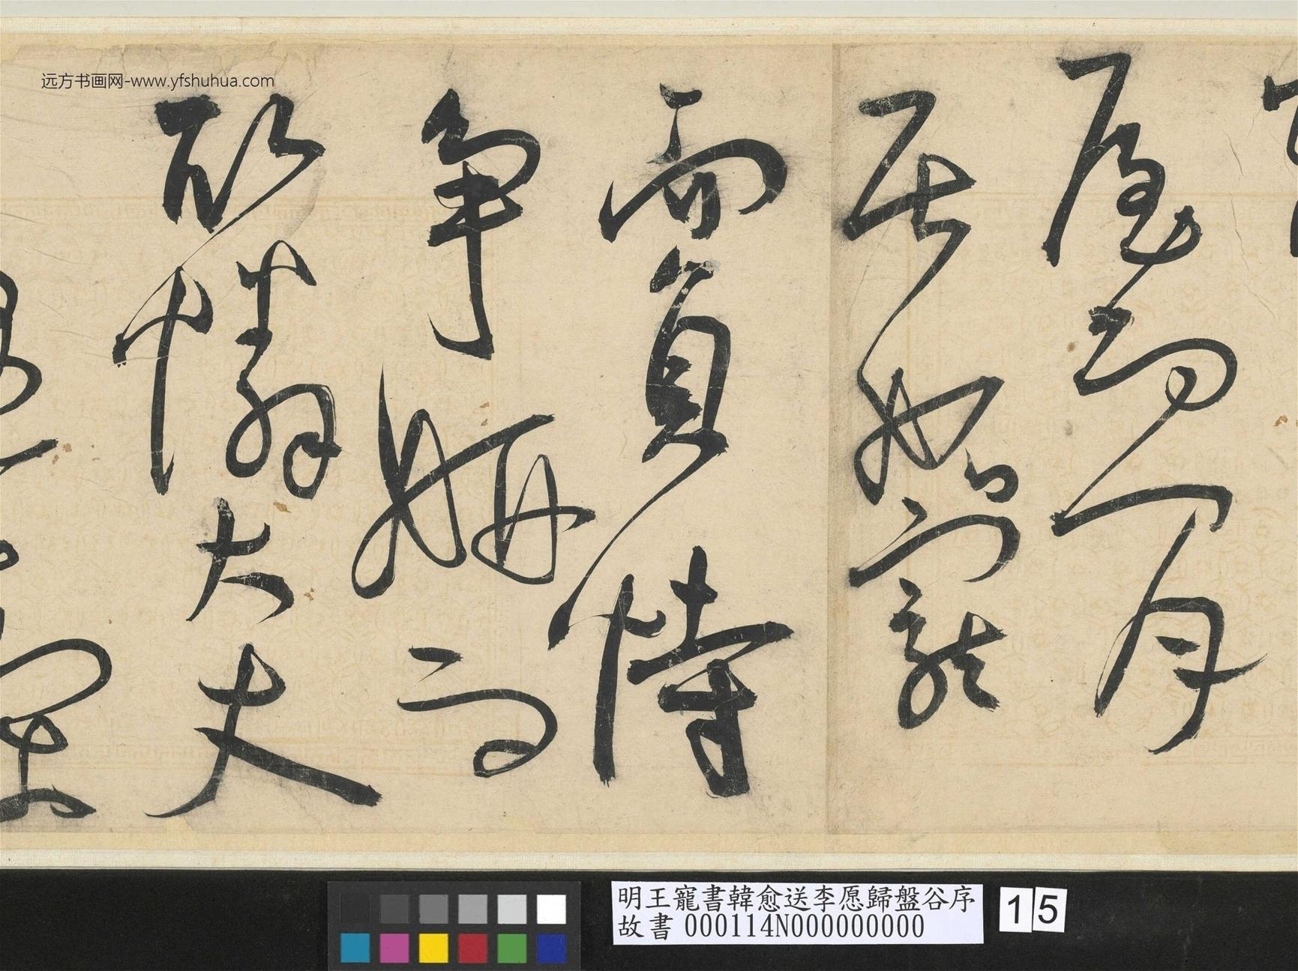 远方书画网-www.yfshuhua.com
屋而閒
居妒寵
而負恃
争妍而
取憐大夫
明王寵書韓愈送李愿歸盤谷序
故書 000114N000000000
15